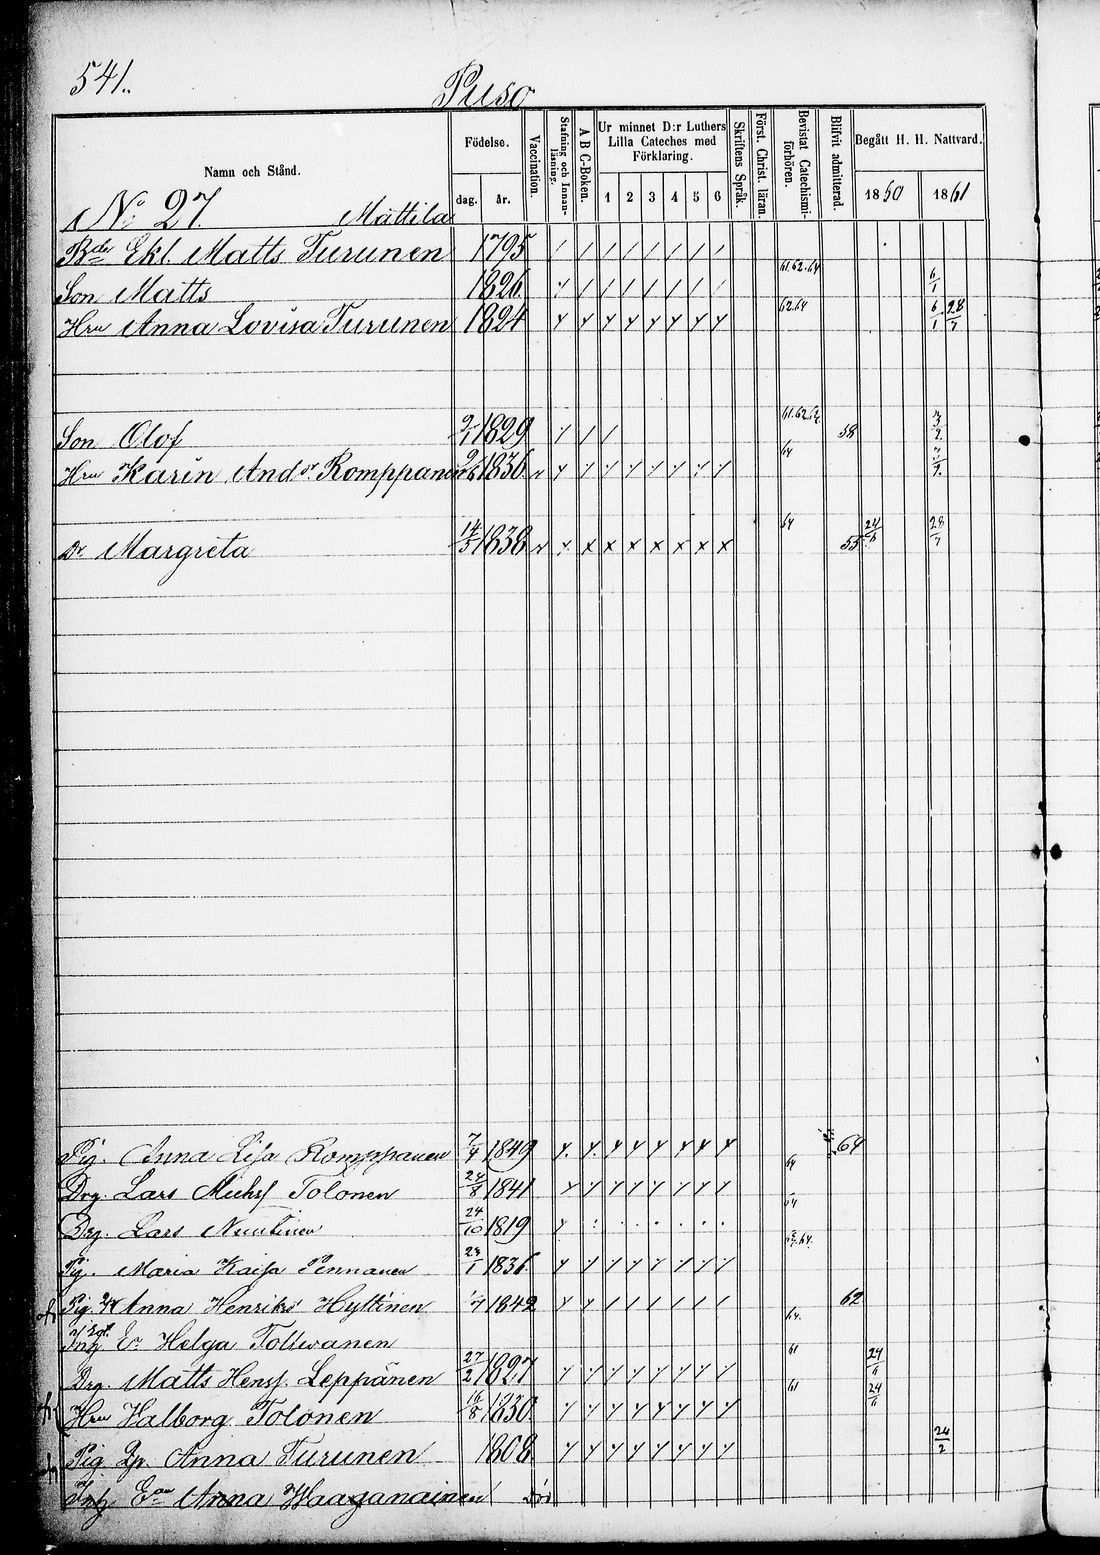 541.
Puso
Namn och Stånd.
Födelse.
dag.
år.
Vaccination.
Stafning och Innanläsning.
A B C-Boken.
Ur minnet D:r Luthers Lilla Cateches med Förklaring.
1 2 3 4 5 6
Skriftens Språk.
Först. Christ. läran.
Bevistat Catechismiförhören.
Blifvit admitterad.
Begått H. H. Nattvard.
1850
1861
No 27. Mattila
Bde Ekl. Matts Turunen 1795
Son Matts 1826. 61.62.64 6/1
Hru Anna Lovisa Turunen 1824 62.64 6/1 28/7
Son Olof 1829 61.62. 58 3/2
Hru Karin And.dr Romppanen 1836. v 64
Dr. Margreta 14/5 1838 v 64 55 28/7
Pig. Anna Lisa Romppanen 7/4 1849 64
Drg. Lars Michsf Tolonen 24/8 1841 64
Drg. Lars Nuutinen 24/10 1819
Pig. Maria Kaisa Pennanen 1836 64.
Pig. Anna Henriks Hyttinen 1842 62
Inh E. Helga Tolwanen 64.
Drg. Matts Hensf. Leppänen 27/2 1827 61 24/6
Hru Halborg Tolonen 16/8 1830 61 24/6
Pig Anna Turunen 1808 24/2
Inh Ean Anna Waaganainen Död